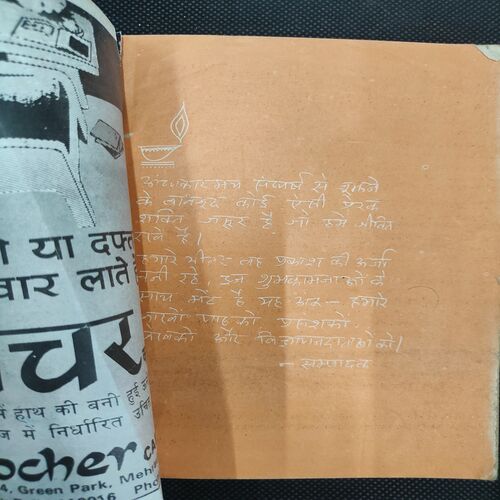 या दफ्त
वार लाते
चर
में हाथ की बनी
ज में निर्धारित
हुई
ocher
4, Green Park, Meh
Pho
16
अन्धकारमय संघर्ष से जूझने
के बावजूद कोई ऐसी प्रेरक
शक्ति जरूर है जो हमें जीवित
रखे है।
हमारे भीतर वह प्रकाश की ऊर्जा
बनी रहे, इन शुभकामनाओं के
साथ भेंट है यह अंक – हमारे
लाखों पाठकों, प्रशंसकों,
और विज्ञापनदाताओं को।
– सम्पादक